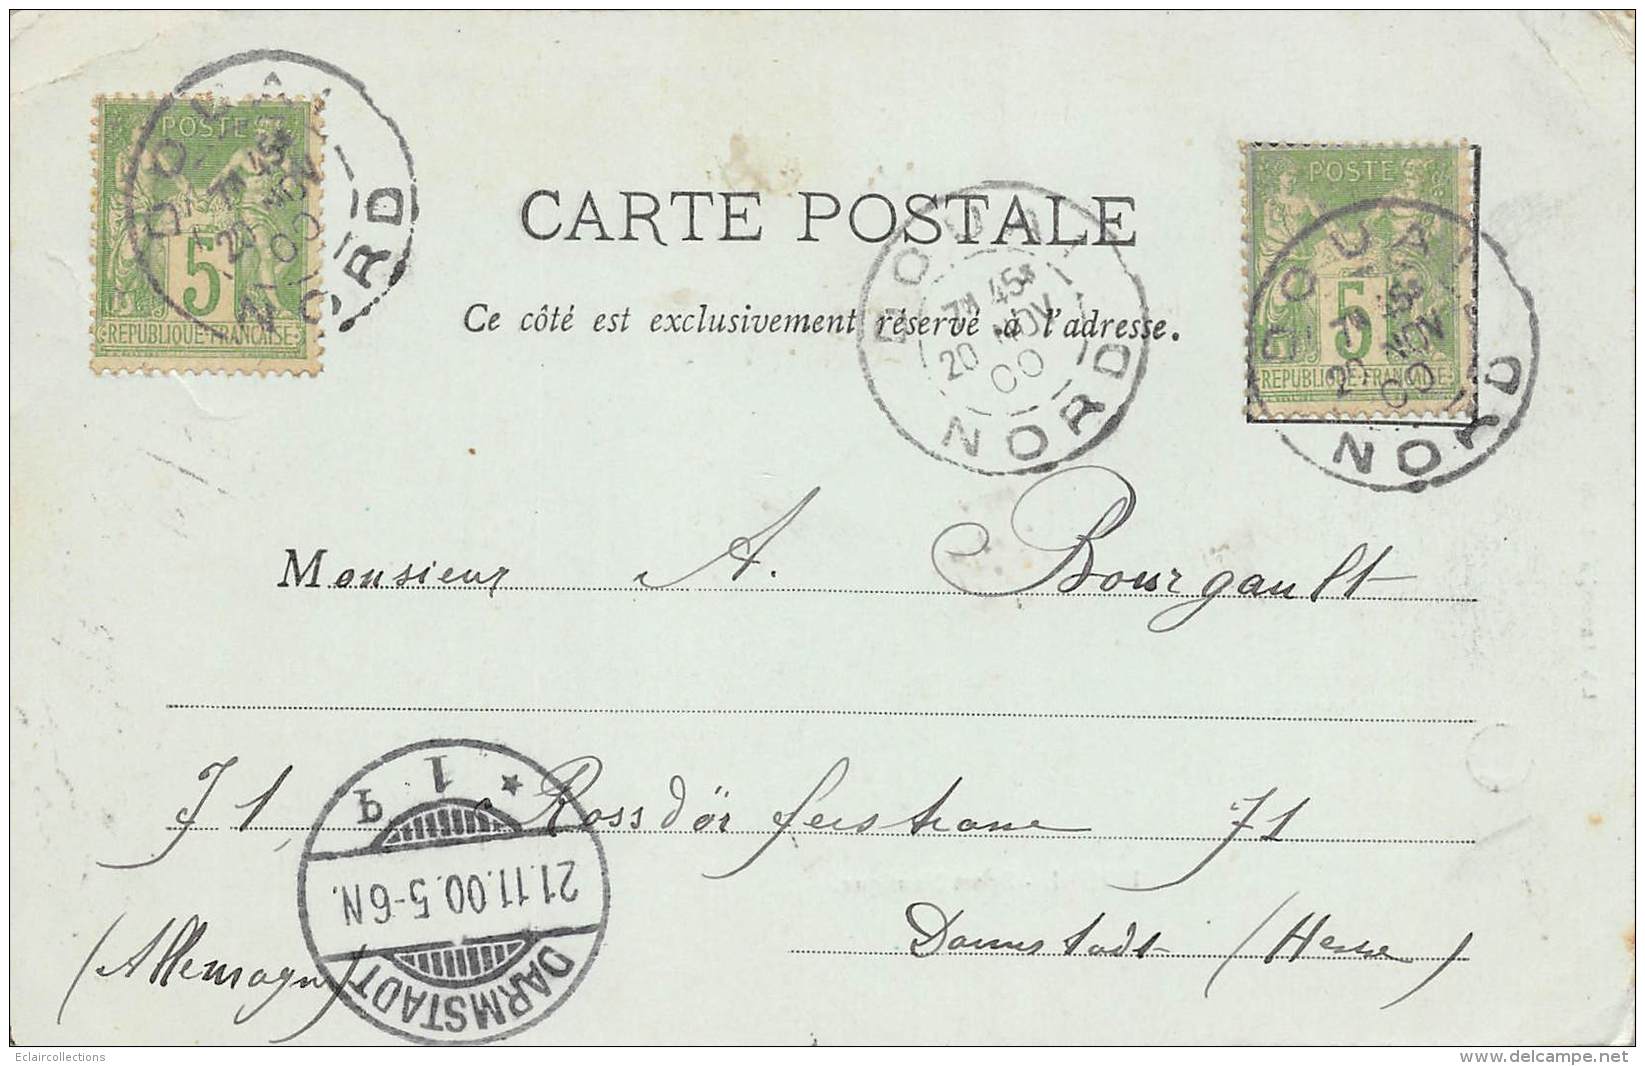 POSTE
5
REPUBLIQUE FRANÇAISE
DOUAI
7M 45S
20 NOV
00
NORD
CARTE POSTALE
Ce côté est exclusivement réservé à l'adresse.
DOUAI
7M 45S
20 NOV
00
NORD
POSTE
5
REPUBLIQUE FRANÇAISE
DOUAI
7M 45S
20 NOV
00
NORD
Monsieur A. Bourgault
71, Rossdörferstrasse 71
Darmstadt (Hesse)
(Allemagne)
DARMSTADT
21.11.00.5-6N.
* 1 q
Eclaircollections
www.delcampe.net